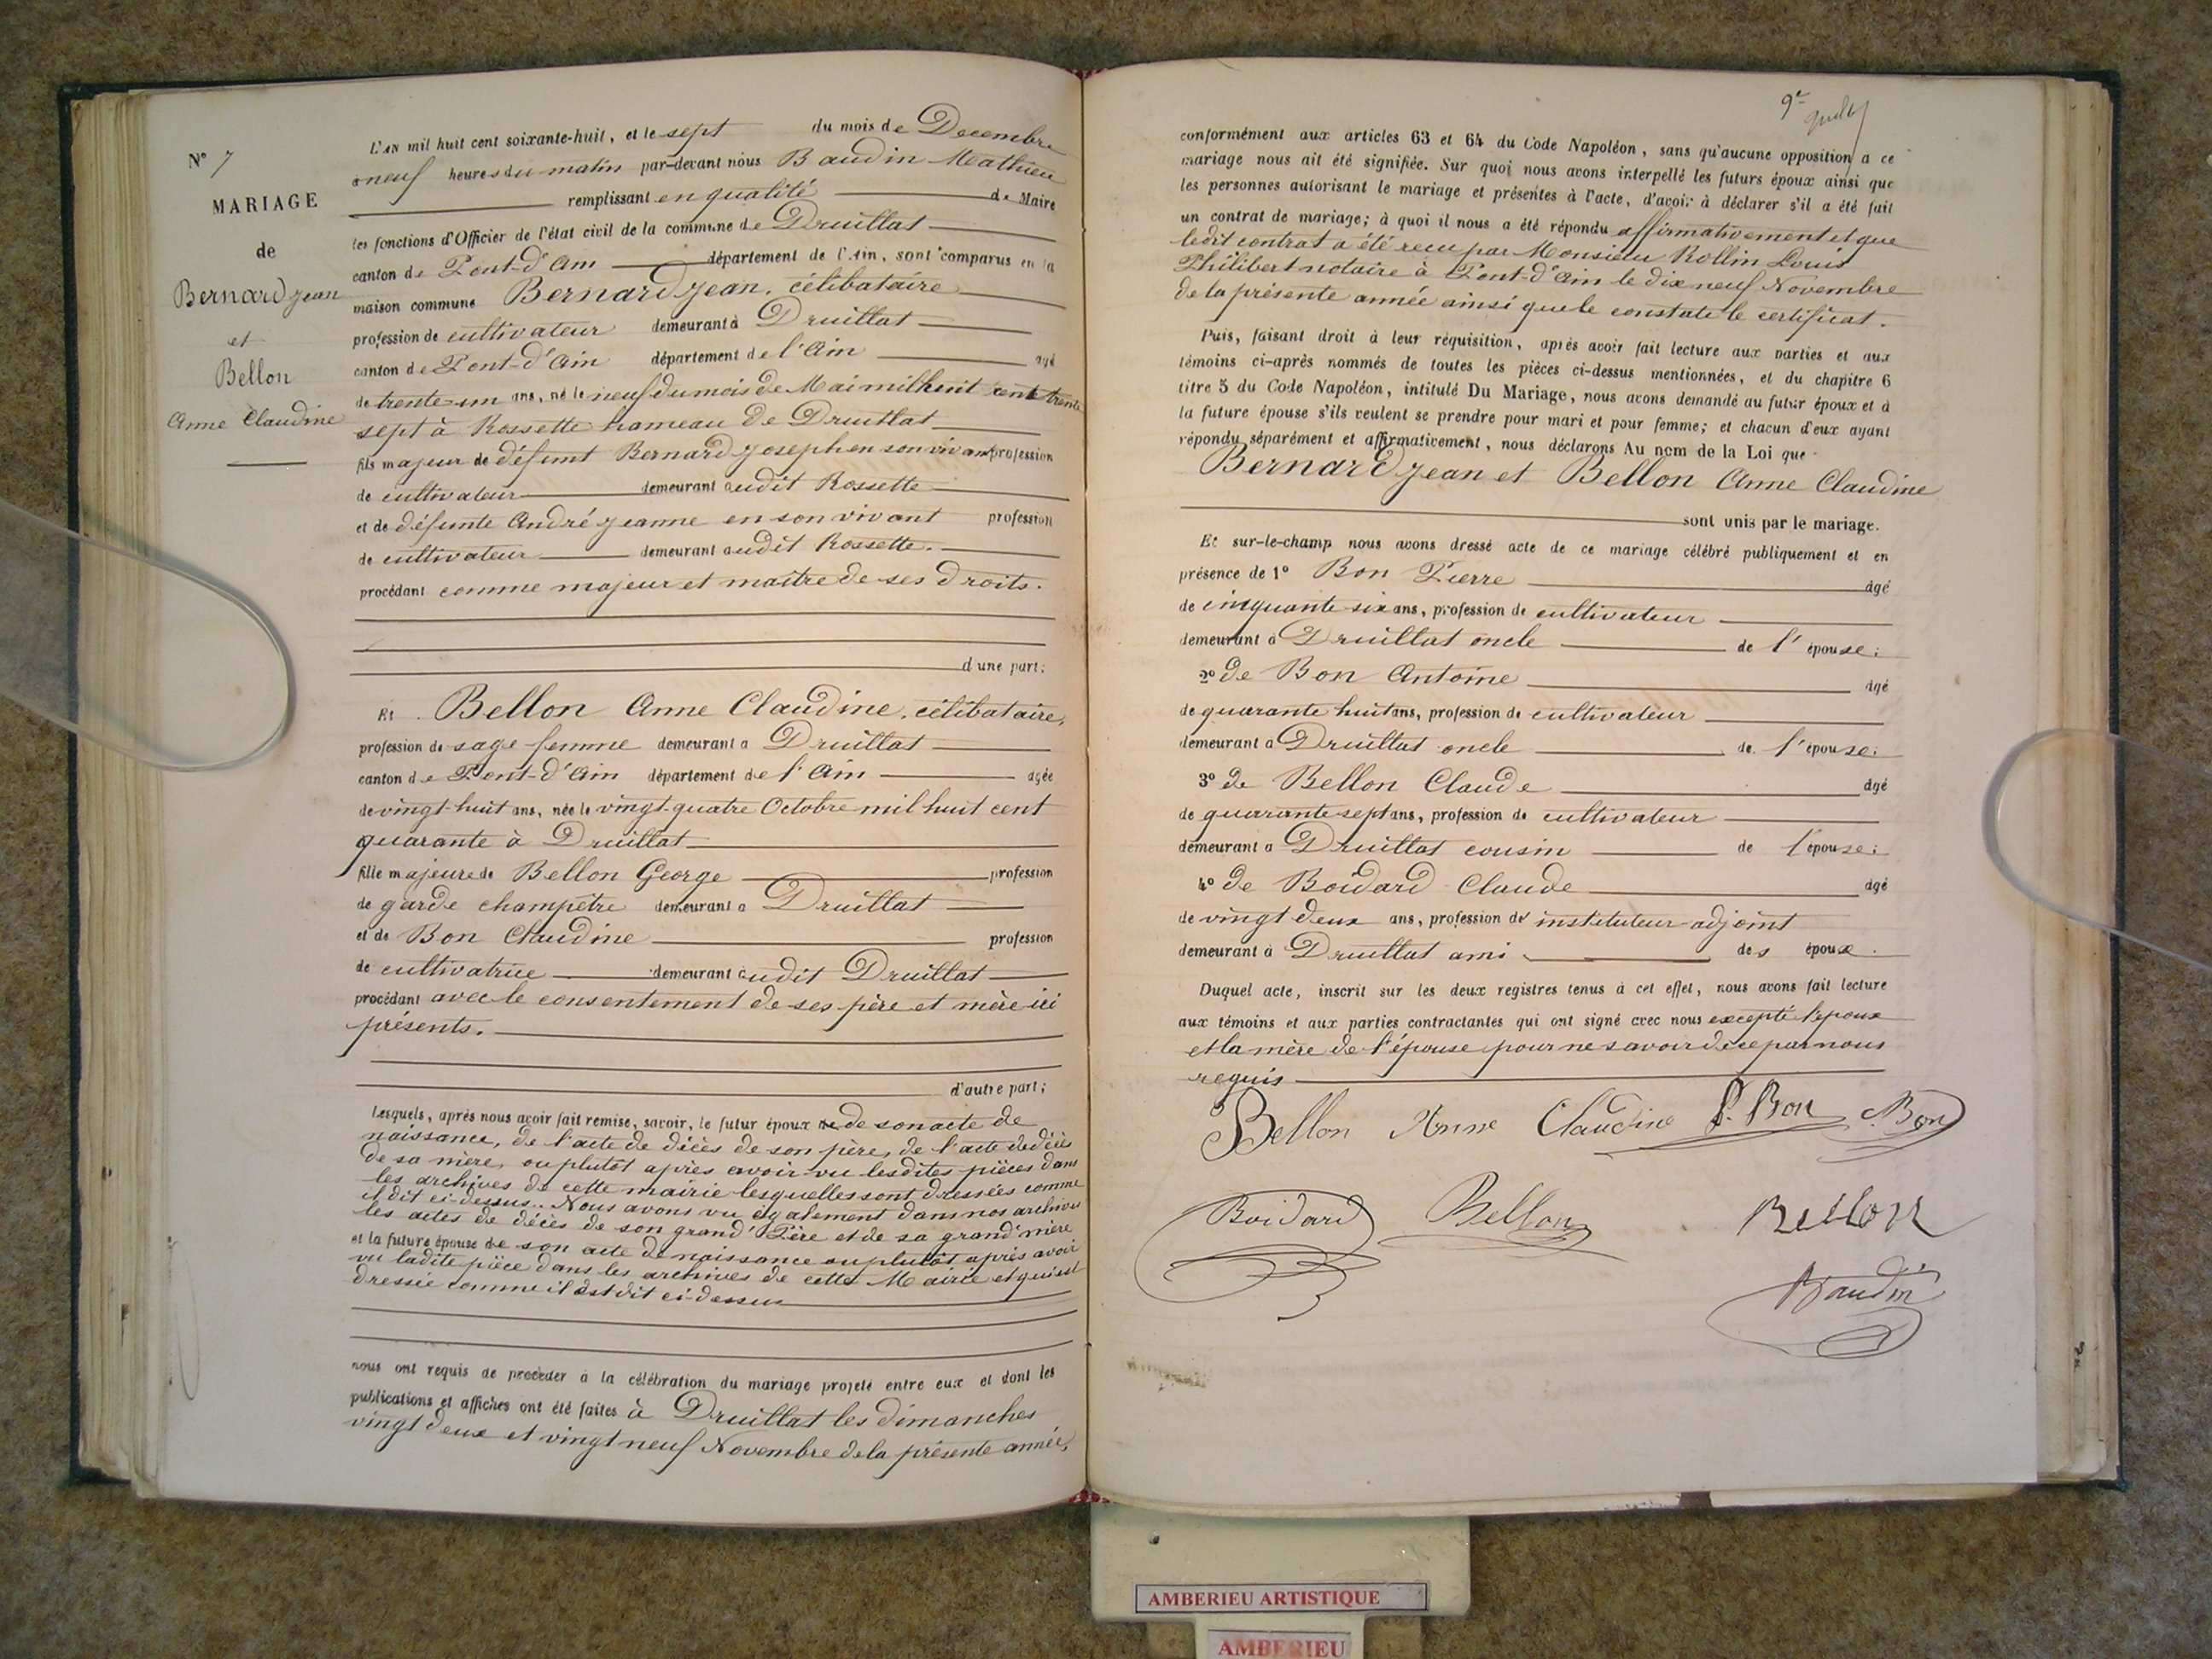 N° 7
MARIAGE
de
Bernard Jean
et
Bellon
Anne Claudine
L'AN mil huit cent soixante-huit, et le sept du mois de Decembre
à neuf heures du matin par-devant nous Baudin Mathieu
remplissant en qualité de Maire
les fonctions d'Officier de l'état civil de la commune de Druillat
canton de Pont-d'Ain département de l'Ain, sont comparus en la
maison commune Bernard Jean, célibataire
profession de cultivateur demeurant à Druillat
canton de Pont-d'Ain département de l'Ain agé
de trente-un ans, né le neuf du mois de Mai mil huit cent trente
sept à Rossette hameau de Druillat
fils majeur de défunt Bernard Joseph en son vivant profession
de cultivateur demeurant audit Rossette
et de défunte André Jeanne en son vivant profession
de cultivateur demeurant audit Rossette.
procédant comme majeur et maitre de ses droits.
d'une part;
Et Bellon Anne Claudine, célibataire,
profession de sage femme demeurant a Druillat
canton de Pont-d'Ain département de l'Ain agée
de vingt-huit ans, née le vingt-quatre Octobre mil huit cent
quarante à Druillat
fille majeure de Bellon George profession
de garde champetre demeurant a Druillat
et de Bon Claudine profession
de cultivatrice demeurant audit Druillat
procédant avec le consentement de ses père et mère ici
présents.
d'autre part;
Lesquels, après nous avoir fait remise, savoir, le futur époux de son acte de
naissance, de l'acte de décès de son père, de l'acte de décès
de sa mère, ou plutôt après avoir vu lesdites pièces dans
les archives de cette mairie lesquelles sont dressées comme
il dit ci-dessus. Nous avons vu également dans nos archives
les actes de décès de son grand'Père et de sa grand'mère
et la future épouse de son acte de naissance ou plutôt après avoir
vu ladite pièce dans les archives de cette Mairie et qui est
dressée comme il est dit ci-dessus
nous ont requis de procéder à la célébration du mariage projeté entre eux et dont les
publications et affiches ont été faites à Druillat les dimanches
vingt deux et vingt neuf Novembre de la présente année,
9e
conformément aux articles 63 et 64 du Code Napoléon, sans qu'aucune opposition a ce
mariage nous ait été signifiée. Sur quoi nous avons interpellé les futurs époux ainsi que
les personnes autorisant le mariage et présentes à l'acte, d'avoir à déclarer s'il a été fait
un contrat de mariage; à quoi il nous a été répondu affirmativement et que
ledit contrat a été reçu par Monsieur Rollin Louis
Philibert notaire à Pont-d'Ain le dix neuf Novembre
de la présente année ainsi que le constate le certificat.
Puis, faisant droit à leur réquisition, après avoir fait lecture aux parties et aux
témoins ci-après nommés de toutes les pièces ci-dessus mentionnées, et du chapitre 6
titre 5 du Code Napoléon, intitulé Du Mariage, nous avons demandé au futur époux et à
la future épouse s'ils veulent se prendre pour mari et pour femme; et chacun d'eux ayant
répondu séparément et affirmativement, nous déclarons Au nom de la Loi que
Bernard Jean et Bellon Anne Claudine
sont unis par le mariage.
Et sur-le-champ nous avons dressé acte de ce mariage célébré publiquement et en
présence de 1° Bon Pierre âgé
de cinquante-six ans, profession de cultivateur
demeurant à Druillat oncle de l'épouse;
2° de Bon Antoine âgé
de quarante huit ans, profession de cultivateur
demeurant à Druillat oncle de l'épouse;
3° de Bellon Claude âgé
de quarante-sept ans, profession de cultivateur
demeurant a Druillat cousin de l'épouse;
4° de Boidard Claude âgé
de vingt deux ans, profession de instituteur-adjoint
demeurant à Druillat ami des époux.
Duquel acte, inscrit sur les deux registres tenus à cet effet, nous avons fait lecture
aux témoins et aux parties contractantes qui ont signé avec nous excepté l'époux
et la mère de l'épouse pour ne savoir de ce par nous
requis
Bellon Anne Claudine P. Bon Bon
Boidard Bellon Bellon
Baudin
AMBERIEU ARTISTIQUE
AMBERIEU